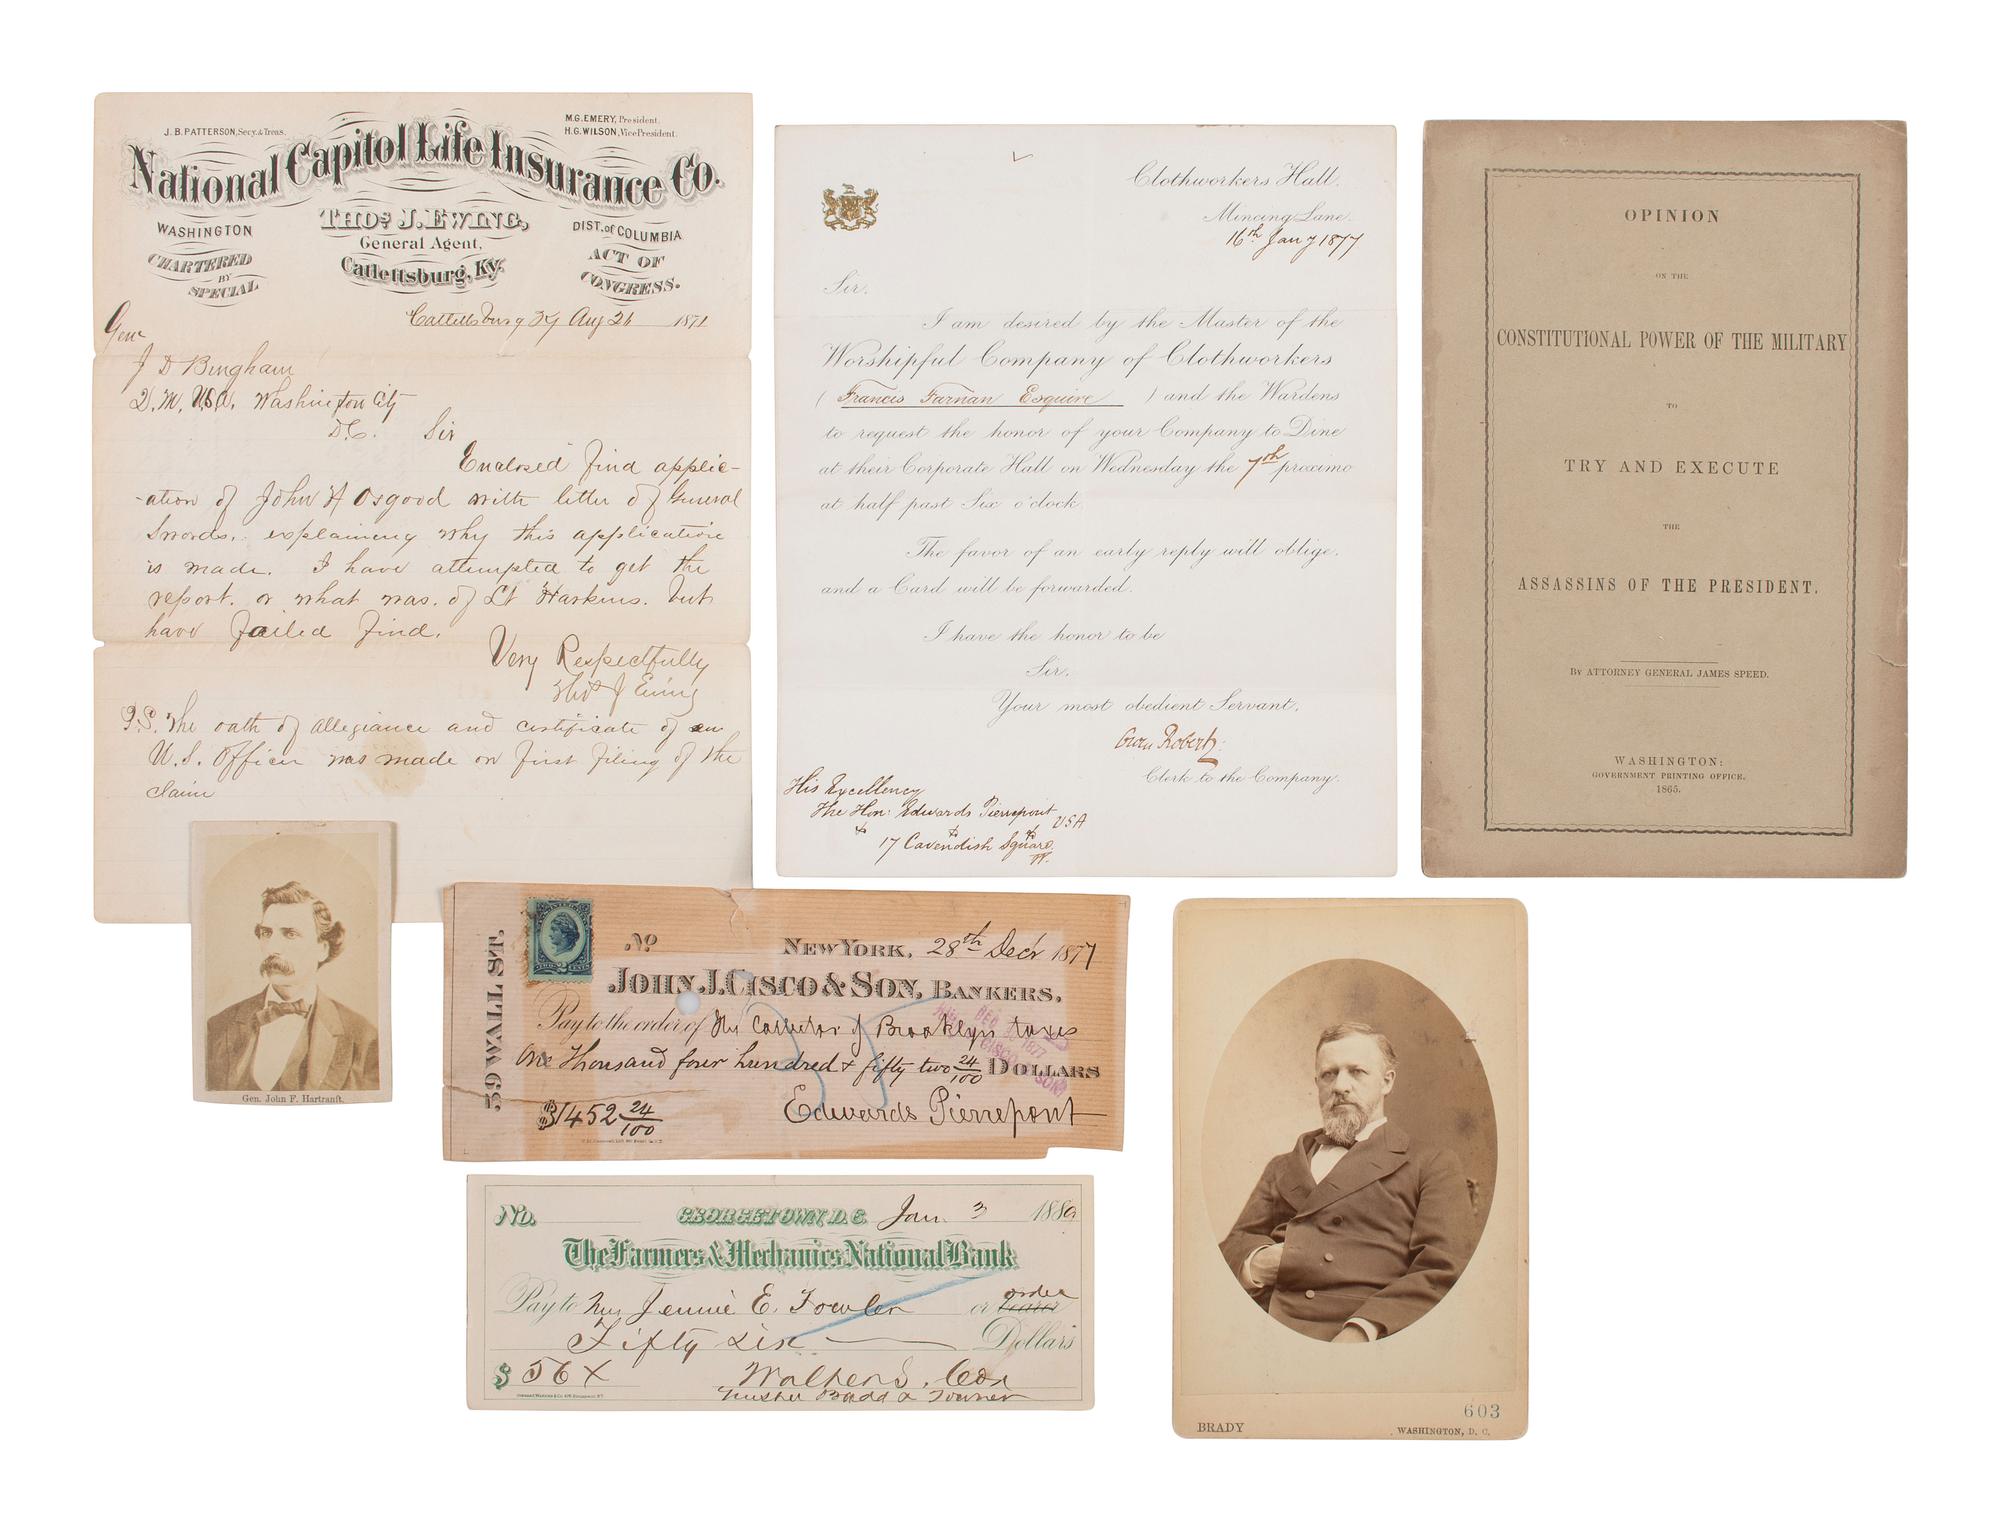 J. B. PATTERSON, Secy. & Treas.
M. G. EMERY, President.
H. G. WILSON, Vice President.
National Capitol Life Insurance Co.
WASHINGTON
CHARTERED
BY
SPECIAL
THOS. J. EWING,
General Agent,
Catlettsburg, Ky.
DIST. of COLUMBIA
ACT OF
CONGRESS.
Catlettsburg Ky Aug 26 1871
Genl
J D Bingham
Q. M, USA. Washington City
D.C. Sir
Enclosed find applic-
-ation of John H Osgood with letter of General
Swords, explaining why this application
is made. I have attempted to get the
report. or what was. of Lt Harkins. but
have failed find.
Very Respectfully
Thos J Ewing
P.S. The oath of allegiance and certificate of an
U.S. Officer was made on first filing of the
claim
Clothworkers Hall.
Mincing Lane.
16th Jany 1877
Sir.
I am desired by the Master of the
Worshipful Company of Clothworkers
(Francis Farnan Esquire) and the Wardens
to request the honor of your Company to Dine
at their Corporate Hall on Wednesday the 7th proximo
at half past Six o'clock.
The favor of an early reply will oblige,
and a Card will be forwarded.
I have the honor to be
Sir,
Your most obedient Servant,
Owen Roberts
Clerk to the Company.
His Excellency
The Hon: Edwards Pierrepont
USA
17 Cavendish Square
W.
OPINION
ON THE
CONSTITUTIONAL POWER OF THE MILITARY
TO
TRY AND EXECUTE
THE
ASSASSINS OF THE PRESIDENT.
By ATTORNEY GENERAL JAMES SPEED.
WASHINGTON:
GOVERNMENT PRINTING OFFICE.
1865.
Gen. John F. Hartranft.
59 WALL ST.
No
NEW YORK, 28th Decr 1877
JOHN J. CISCO & SON, BANKERS,
Pay to the order of The Collector of Brooklyn taxes
One Thousand four hundred & fifty two 24/100 DOLLARS
$1452 24/100
Edwards Pierrepont
No.
GEORGETOWN, D.C. Jan. 3 1889
The Farmers & Mechanics National Bank
Pay to Mrs Jennie E. Fowler or bearer order
Fifty six Dollars
$ 56 X
Walter S. Cox
Trustee
603
BRADY
WASHINGTON, D. C.